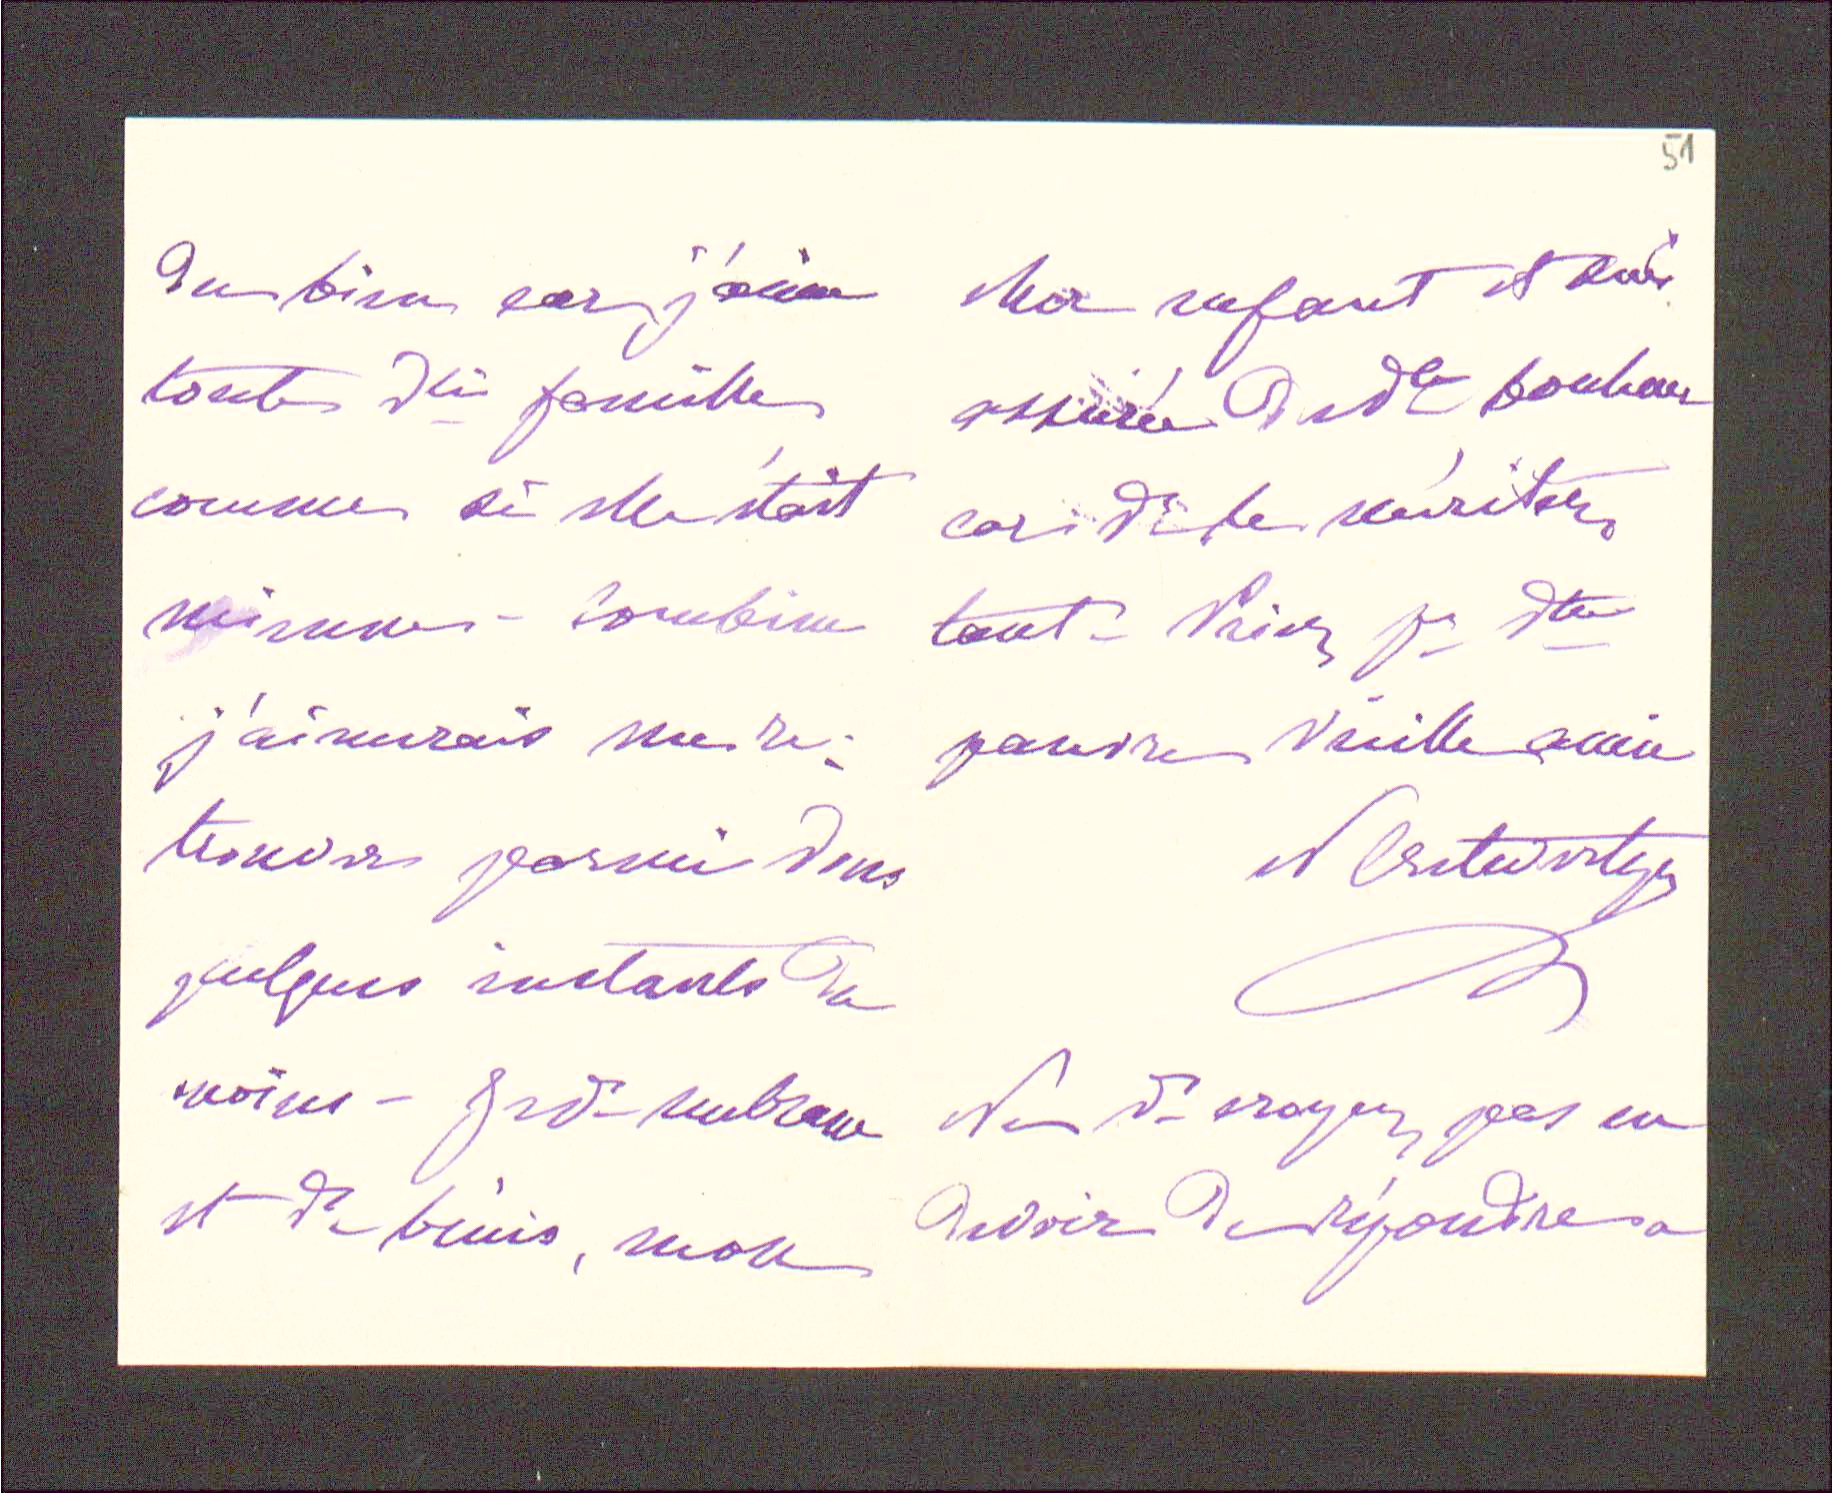 51
du bien car j'aime
toute vtre famille
comme si elle était
mienne - Combien
j'aimerais me re-
trouver parmi vous
quelques instants du
moins - Je vs embrasse
et vs bénis, mon
cher enfant et suis
assurée de vtre bonheur
car vs le méritez
tant - Priez pr vtre
pauvre vieille amie
N
Ne vs croyez pas en
devoir de répondre a